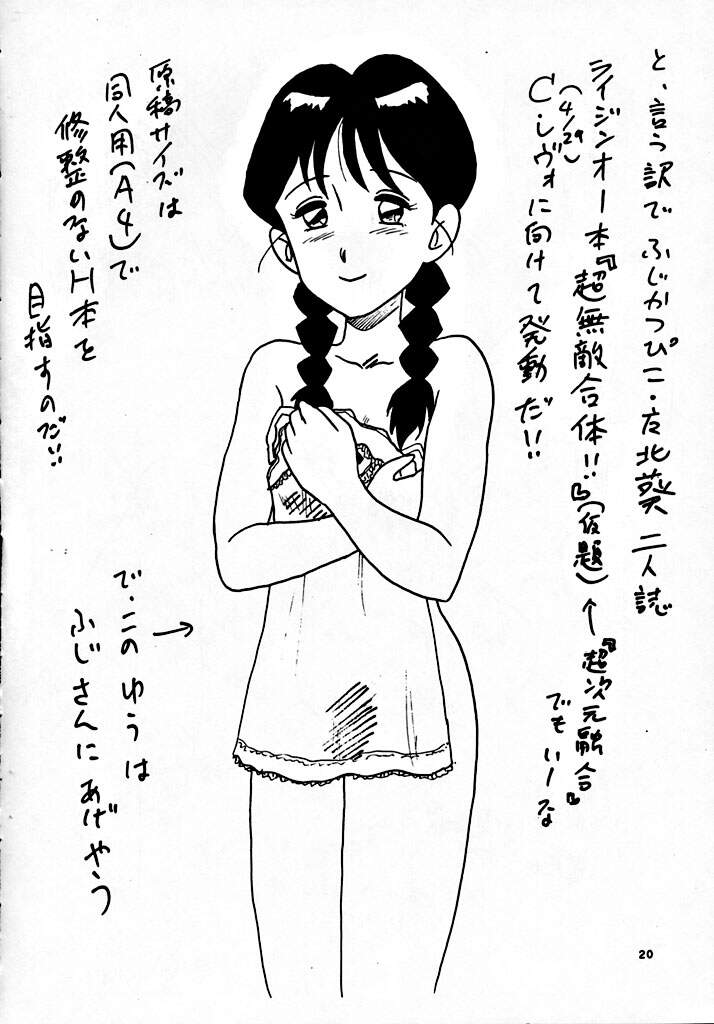 と、言う訳でふじかつぴこ・左北葵二人誌
ライジンオー本『超無敵合体!!』(仮題)←『超次元融合』
でもいーな
(4/29)
C・レヴォに向けて発動だ!!
原稿サイズは
同人用(A4)で
修整のないH本を
目指すのだ!!
で・このゆうは
ふじさんにあげやう
→
20